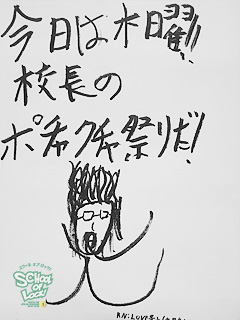 今日は木曜!!
校長の
ポチャクチャ祭りだ!
SCHOOL
OF
LOCK!
RN:LOVE